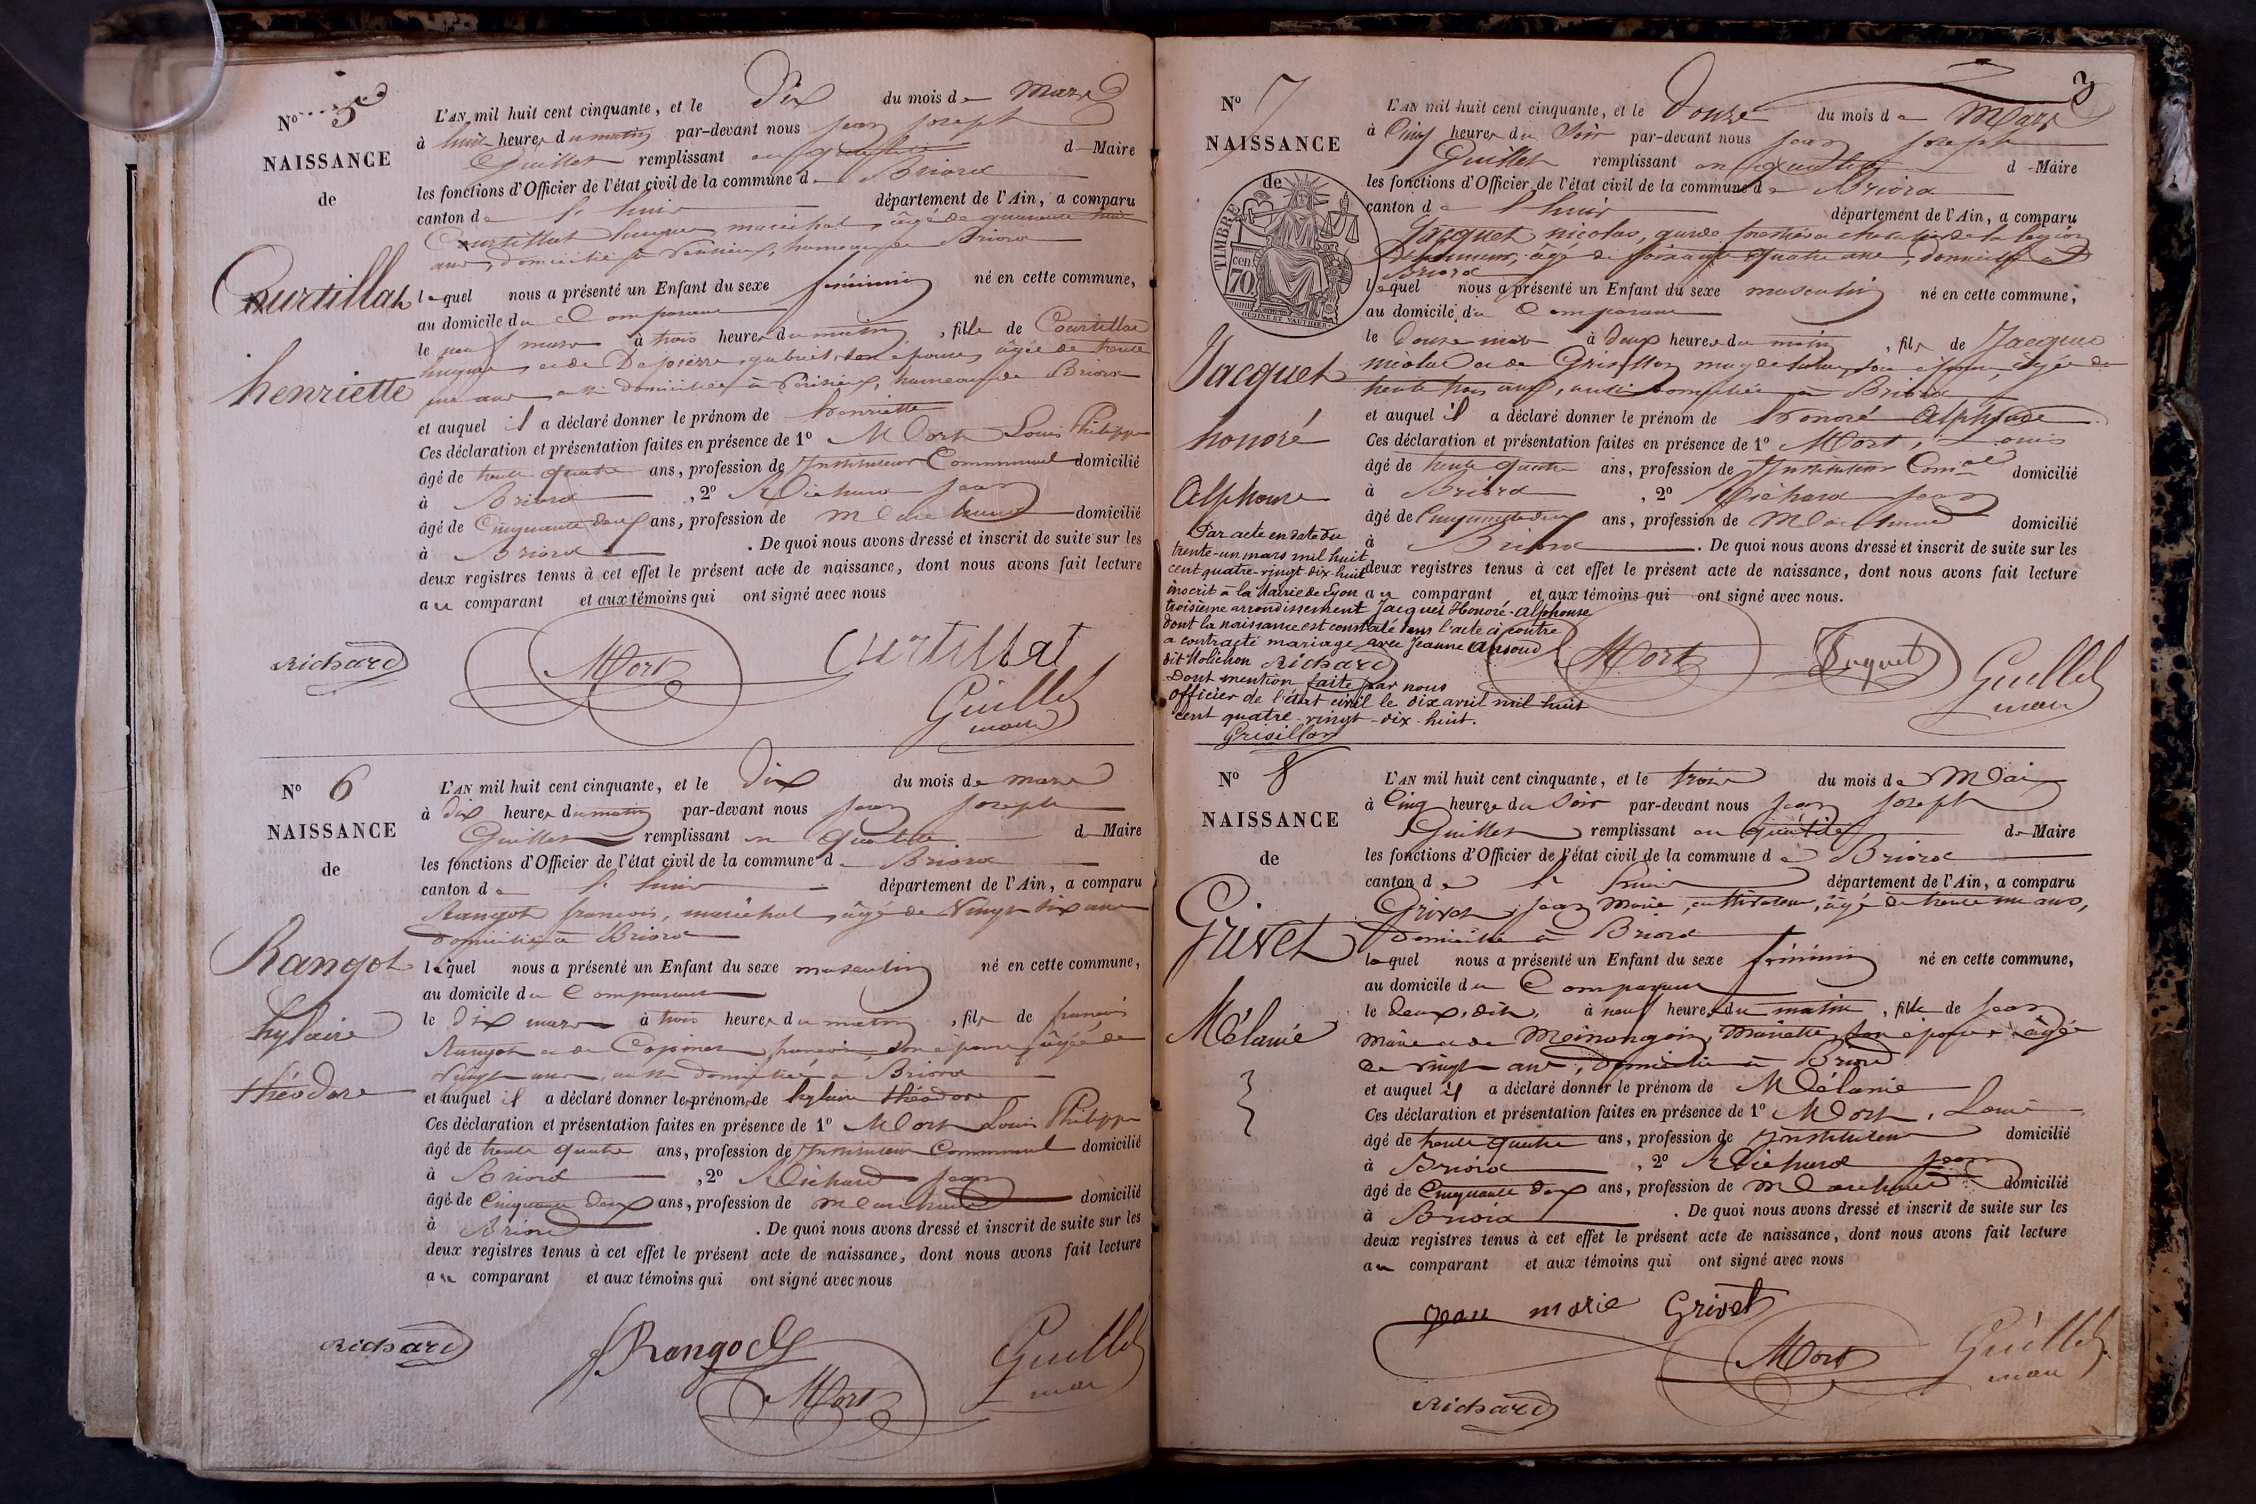 N° 5
NAISSANCE
de
Courtillat
henriette
L'AN mil huit cent cinquante, et le Dix du mois de Mars
à huit heures du matin par-devant nous jean joseph
Guillet remplissant en qualité de Maire
les fonctions d'Officier de l'état civil de la commune de Briord
canton de l'huis département de l'Ain, a comparu
Courtillat hugues maréchal, âgé de quarante huit
ans, domicilié à Vérizieu, hameau de Briord
lequel nous a présenté un Enfant du sexe féminin né en cette commune,
au domicile du Comparant
le neuf mars à trois heures du matin, fille de Courtillat
hugues, et de son épouse, âgée de trente
ans aussi domiciliée à Vérizieu, hameau de Briord
et auquel il a déclaré donner le prénom de henriette
Ces déclaration et présentation faites en présence de 1° Mort Louis Philippe
âgé de trente quatre ans, profession de Instituteur Communal domicilié
à Briord, 2° Richard jean
âgé de Cinquante deux ans, profession de Marchand domicilié
à Briord. De quoi nous avons dressé et inscrit de suite sur les
deux registres tenus à cet effet le présent acte de naissance, dont nous avons fait lecture
au comparant et aux témoins qui ont signé avec nous
Richard Mort Curtillat
Guillet
maire
N° 6
NAISSANCE
de
Rangot
hylaire
théodore
L'AN mil huit cent cinquante, et le dix du mois de mars
à dix heures du matin par-devant nous jean joseph
Guillet remplissant en qualité de Maire
les fonctions d'Officier de l'état civil de la commune de Briord
canton de l'huis département de l'Ain, a comparu
Rangot françois, maréchal, âgé de Vingt six ans
domicilié à Briord
lequel nous a présenté un Enfant du sexe masculin né en cette commune,
au domicile du Comparant
le dix mars à trois heures du matin, fils de françois
Rangot et de son épouse, âgée de
Vingt ans, aussi domiciliée à Briord
et auquel il a déclaré donner les prénoms de hylaire théodore
Ces déclaration et présentation faites en présence de 1° Mort Louis Philippe
âgé de trente quatre ans, profession de Instituteur Communal domicilié
à Briord, 2° Richard jean
âgé de Cinquante deux ans, profession de Marchand domicilié
à Briord. De quoi nous avons dressé et inscrit de suite sur les
deux registres tenus à cet effet le présent acte de naissance, dont nous avons fait lecture
au comparant et aux témoins qui ont signé avec nous
Richard f. Rangod Guillet
Mort maire
3
N° 7
NAISSANCE
de
TIMBRE
cen. 70
OUDINÉ ET VAUTHIER
Jacquet
honoré
Alphonse
L'AN mil huit cent cinquante, et le Douze du mois de Mars
à Cinq heures du Soir par-devant nous jean joseph
Guillet remplissant en qualité de Maire
les fonctions d'Officier de l'état civil de la commune de Briord
canton de l'huis département de l'Ain, a comparu
Jacquet nicolas, garde forestier et chevalier de la legion
d'honneur, âgé de soixante quatre ans, domicilié à
Briord
lequel nous a présenté un Enfant du sexe masculin né en cette commune,
au domicile du Comparant
le Douze mars à deux heures du matin, fils de Jacquet
nicolas et de Grisollon son épouse, âgée de
trente trois ans, aussi domiciliée à Briord
et auquel il a déclaré donner le prénom de honoré Alphonse
Ces déclaration et présentation faites en présence de 1° Mort, Louis
âgé de trente quatre ans, profession de Instituteur Comal domicilié
à Briord, 2° Richard jean
âgé de Cinquante deux ans, profession de Marchand domicilié
à Briord. De quoi nous avons dressé et inscrit de suite sur les
deux registres tenus à cet effet le présent acte de naissance, dont nous avons fait lecture
au comparant et aux témoins qui ont signé avec nous.
Par acte en date du
trente-un mars mil huit
cent quatre-vingt-dix-huit
inscrit à la Mairie de Lyon
troisième arrondissement Jacquet Honoré-Alphonse
dont la naissance est constatée dans l'acte ci contre
a contracté mariage avec Jeanne
dit Molichon
Dont mention faite par nous
officier de l'état civil le dix avril mil huit
cent quatre-vingt-dix-huit.
Grisollon
Richard Mort Jaquet Guillet
maire
N° 8
NAISSANCE
de
Grivet
Mélanie
L'AN mil huit cent cinquante, et le trois du mois de Mai
à Cinq heures du Soir par-devant nous jean joseph
Guillet remplissant en qualité de Maire
les fonctions d'Officier de l'état civil de la commune de Briord
canton de l'huis département de l'Ain, a comparu
Grivet, jean Marie, cultivateur, âgé de trente un ans,
domicilié à Briord
lequel nous a présenté un Enfant du sexe féminin né en cette commune,
au domicile du Comparant
le deux, dit, à neuf heures du matin, fille de jean
Marie et de Mariette, son épouse, âgée
de vingt ans, domiciliée à Briord
et auquel il a déclaré donner le prénom de Mélanie
Ces déclaration et présentation faites en présence de 1° Mort, Louis
âgé de trente quatre ans, profession de Instituteur domicilié
à Briord, 2° Richard jean
âgé de Cinquante deux ans, profession de Marchand domicilié
à Briord. De quoi nous avons dressé et inscrit de suite sur les
deux registres tenus à cet effet le présent acte de naissance, dont nous avons fait lecture
au comparant et aux témoins qui ont signé avec nous
jean marie Grivet
Mort Guillet
maire
Richard